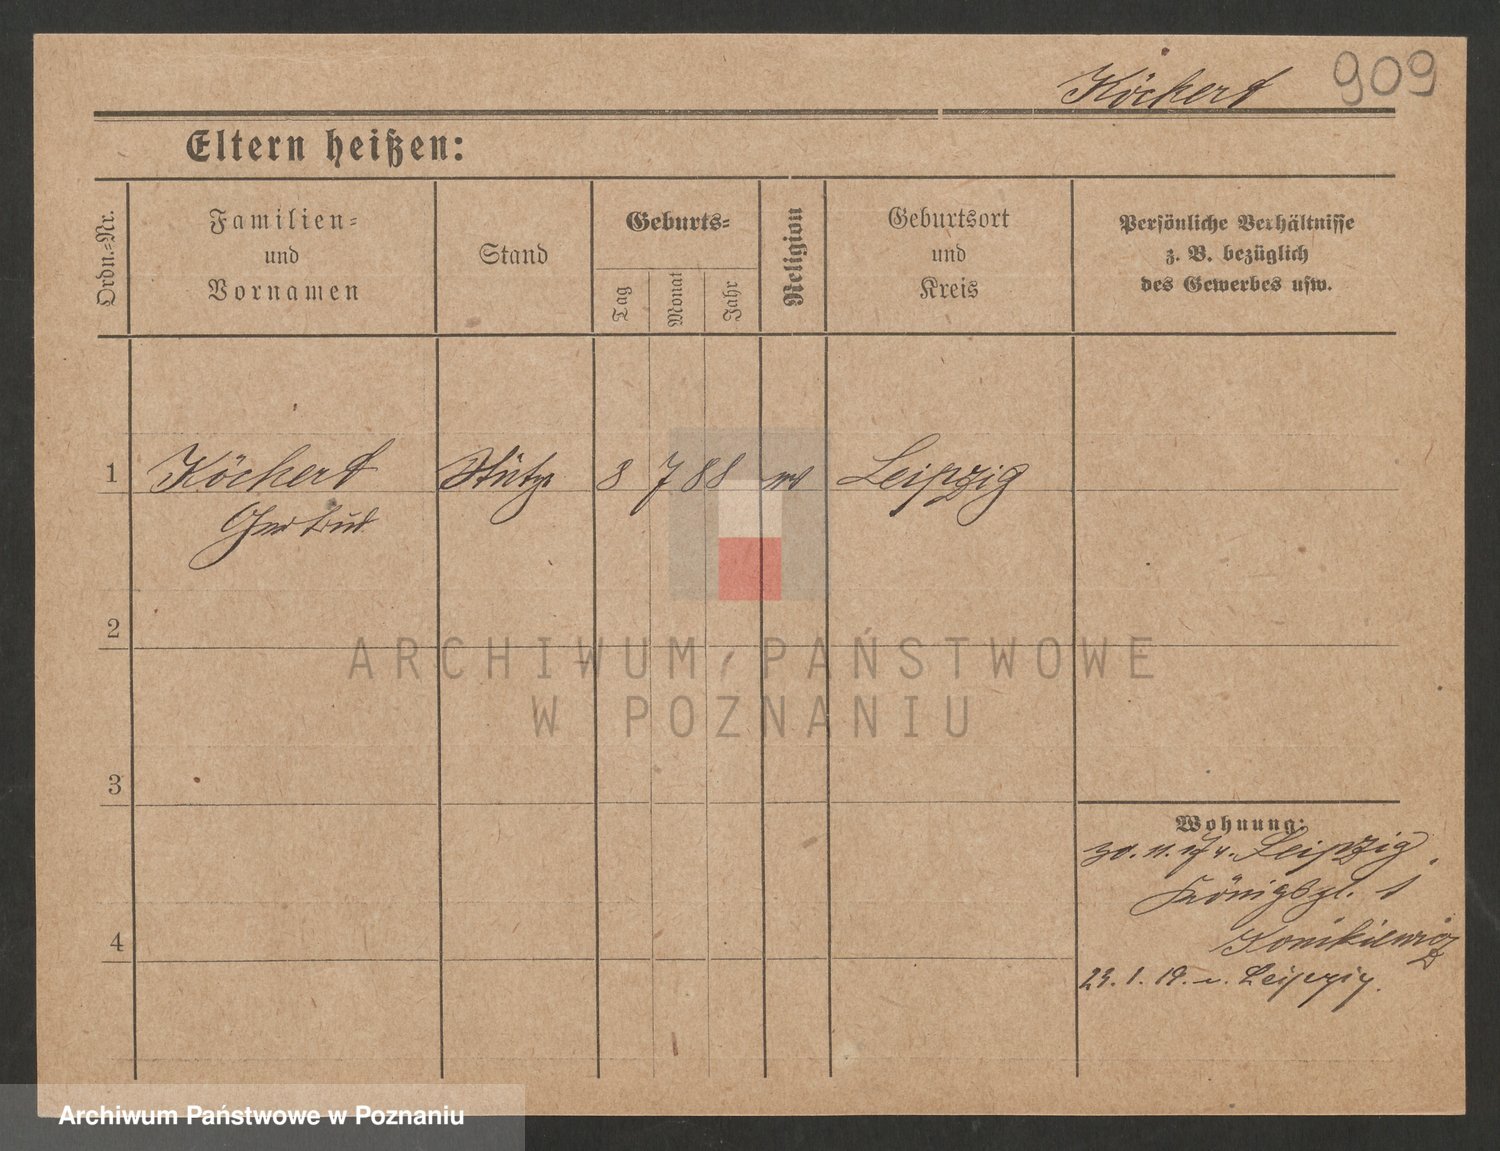 Köckert 909
Eltern heißen:
Ordn.-Nr.
Familien-
und
Vornamen
Stand
Geburts-
Tag
Monat
Jahr
Religion
Geburtsort
und
Kreis
Persönliche Verhältnisse
z. B. bezüglich
des Gewerbes usw.
1 Köckert Stütze 8 7 88 Leipzig
Gertrud
2
3
4
Wohnung:
30. 11. 17 v. Leipzig
Königspl. 1
Konikiewicz
29. 1. 19. n. Leipzig.
ARCHIWUM PAŃSTWOWE
W POZNANIU
Archiwum Państwowe w Poznaniu